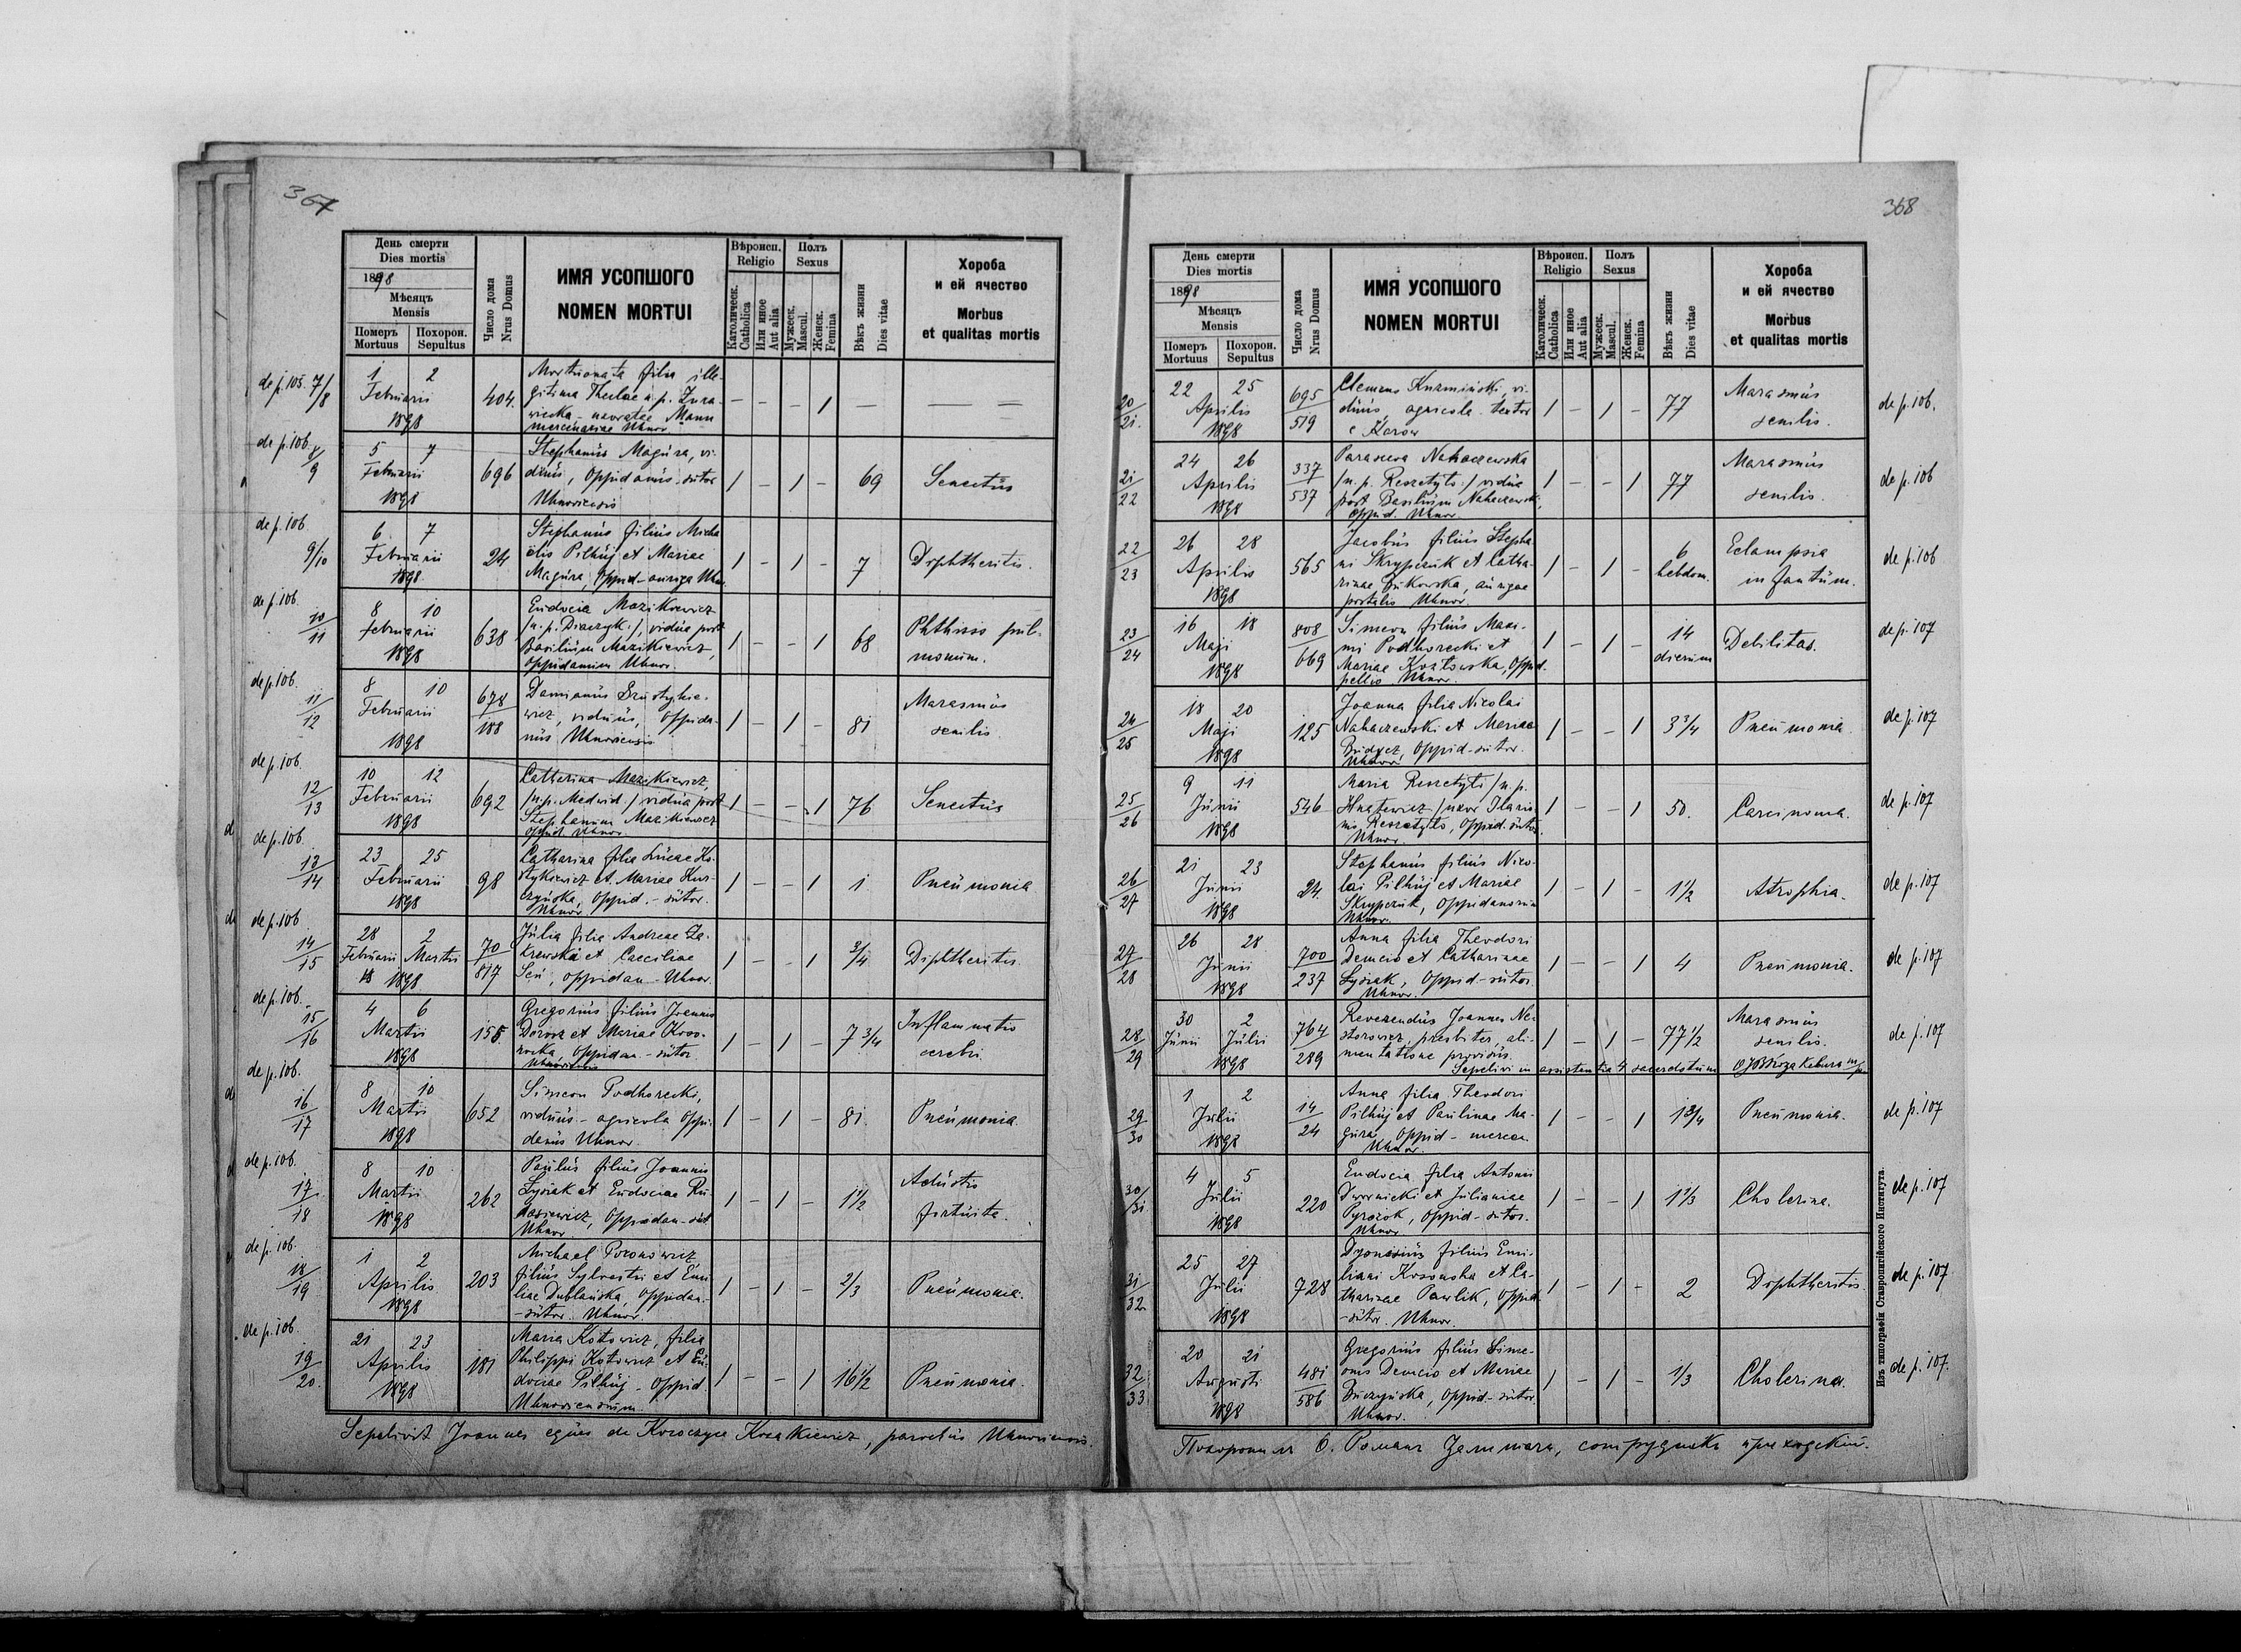 367
День смерти
Dies mortis
1898
Мѣсяць
Mensis
Померъ
Mortuus
Похорон.
Sepultus
Число дома
Nrus Domus
ИМЯ УСОПШОГО
NOMEN MORTUI
Вѣроисп.
Religio
Католическ.
Catholica
Или иное
Aut alia
Полъ
Sexus
Мужеск.
Mascul.
Женск.
Femina
Вѣкъ жизни
Dies vitae
Хороба
и ей ячество
Morbus
et qualitas mortis
de p. 105. 7/8
1 2
Februarii
1898
404.
Mortuonata filia ille-
gitima Theclae n. p. Żura-
wiecka - uxoratae Mann
mercenariae Uhnov
— — — 1 — — — —
de p. 106 8/9
5 7
Februarii
1898
696
Stephanus Magura, vi-
duus, oppidanus - sutor
Uhnoviensis
1 — 1 — 69 Senectus
de p. 106 9/10
6 7
Februarii
1898
24
Stephanus filius Micha
elis Pilhuj et Mariae
Magura, Oppid - auriga Uhn.
1 — 1 — 7 Diphtheritis.
de p. 106. 10/11
8 10
Februarii
1898
638
Eudocia Mazikiewicz
/n. p. Diaczyk./, vidua post
Basilium Mazikiewicz,
oppidanum Uhnov.
1 — — 1 68 Phthisis pul-
monum.
de p. 106. 11/12
8 10
Februarii
1898
678/188
Damianus Szustykie-
wicz, viduus, oppida-
nus Uhnoviensis
1 — 1 — 81 Marasmus
senilis.
de p. 106. 12/13
10 12
Februarii
1898
692
Catherina Mazikiewicz,
/n. p. Medwid./ vidua post
Stephanum Mazikiewicz
oppid. Uhnov
1 — — 1 76 Senectus
de p. 106. 13/14
23 25
Februarii
1898
98
Catharina filia Lucae Ko-
stykiewicz et Mariae Kur-
czyńska, Oppid. - sutor.
Uhnov
1 — — 1 1 Pneumonia
de p. 106 14/15
28 2
Februarii Martii
1898
70/817
Julia filia Andreae Za-
krewska et Caeciliae
Seń, oppidan - Uhnov.
1 — — 1 3/4 Diphtheritis
de p. 106. 15/16
4 6
Martii
1898
155
Gregorius filius Joannis
Dorosz et Mariae Koso-
noska, oppidan - sutor
Uhnoviensis
1 — 1 — 7 3/4 Inflammatio
cerebri
de p. 106. 16/17
8 10
Martii
1898
652
Simeon Podhorecki,
viduus - agricola oppi-
danus Uhnov.
1 — 1 — 81. Pneumonia
de p. 106. 17/18
8 10
Martii
1898
262
Paulus filius Joannis
Łysiak et Eudociae Ru
dasiewicz, Oppidan - sut
Uhnov
1 — 1 — 1 1/2 Adustio
fortuita.
de p. 106. 18/19
1 2
Aprilis
1898
203
Michael Poronowicz
filius Sylvestri et Emi
liae Dublańska Oppidan.
- sutor. Uhnov.
1 — 1 — 2/3 Pneumonia.
de p. 106 19/20.
21 23
Aprilis
1898
181
Maria Kotowicz, filia
Philippi Kotowicz et Eu-
dociae Pilhuj - Oppid
Uhnoviensium.
1 — — 1 16 1/2 Pneumonia.
Sepelivit Joannes eques de Koroczyce Kozakiewicz, parochus Uhnoviensis.
368
День смерти
Dies mortis
1898
Мѣсяць
Mensis
Померъ
Mortuus
Похорон.
Sepultus
Число дома
Nrus Domus
ИМЯ УСОПШОГО
NOMEN MORTUI
Вѣроисп.
Religio
Католическ.
Catholica
Или иное
Aut alia
Полъ
Sexus
Мужеск.
Mascul.
Женск.
Femina
Вѣкъ жизни
Dies vitae
Хороба
и ей ячество
Morbus
et qualitas mortis
20/21.
22 25
Aprilis
1898
695/519
Clemens Kuzmiński, vi-
duus, agricola - textor
e Karow
1 — 1 — 77 Marasmus
senilis.
de p. 106.
21/22
24 26
Aprilis
1898
337/537
Parasceva Nahaczewska
/n. p. Reszetyło./ vidua
post Basilium Nahaczewski,
Oppid. Uhnov
1 — — 1 77 Marasmus
senilis.
de p. 106
22/23
26 28
Aprilis
1898
565
Jacobus filius Stepha
ni Skrypczuk et Catha-
rinae Żukowska, aurigae
postalis Uhnov.
1 — 1 — 6
hebdom.
Eclampsia
infantum.
de p. 106
23/24
16 18
Maji
1898
808/669
Simeon filius Maxi-
mi Podhorecki et
Mariae Kozłowska, Oppid-
pellio Uhnov.
1 — 1 — 14
dierum
Debilitas.
de p. 107
24/25
18 20
Maji
1898
125
Joanna filia Nicolai
Nahaczewski et Mariae
Budycz, Oppid - sutor.
Uhnov
1 — — 1 3 3/4 Pneumonia
de p. 107
25/26
9 11
Junii
1898
546
Maria Reszetyło /n. p.
Hnatewicz/ uxor Ilario
nis Reszetyło, Oppid. sutor.
Uhnov.
1 — — 1 50. Carcinoma.
de p. 107
26/27
21 23
Junii
1898
24.
Stephanus filius Nico-
lai Pilhuj et Mariae
Skrypczuk, Oppidanorum
Uhnov.
1 — 1 — 1 1/2 Atrophia.
de p. 107
27/28
26 28
Junii
1898
700/237
Anna filia Theodori
Demcio et Catharinae
Łysiak, Oppid - sutor.
Uhnov.
1 — — 1 4 Pneumonia.
de p. 107
28/29
30 2
Junii Julii
1898
764/289
Reverendus Joannes Ne-
storowicz, presbiter, ali-
mentatione provisus.
1 — 1 — 77 1/2 Marasmus
senilis.
Sepelivi in assistentia 4 sacerdotum
de p. 107
29/30
1 2
Julii
1898
14/24
Anna filia Theodori
Pilhuj et Paulinae Ma-
gura Oppid - mercen
Uhnov.
1 — — 1 1 3/4 Pneumonia.
de p. 107
30/31
4 5
Julii
1898
220
Eudocia filia Antonii
Dwornicki et Julianiae
Pyrożok, Oppid - sutor.
Uhnov
1 — — 1 1 1/3 Cholerina.
de p. 107
31/32
25 27
Julii
1898
728
Dyonisius filius Emi-
liani Kosonoska et Ca-
tharinae Pawlik, Oppid
- sutor. Uhnov.
1 — 1 — 2 Diphtheritis.
de p. 107
32/33
20 21
Augusti
1898
481/586
Gregorius filius Sime-
onis Demcio et Mariae
Buczyńska, Oppid - sutor
Uhnov.
1 — 1 — 1/3 Cholerina.
de p. 107.
Изъ типографіи Ставропигійского Института.
Похоронилъ О. Романъ сотрудникъ приходскій.